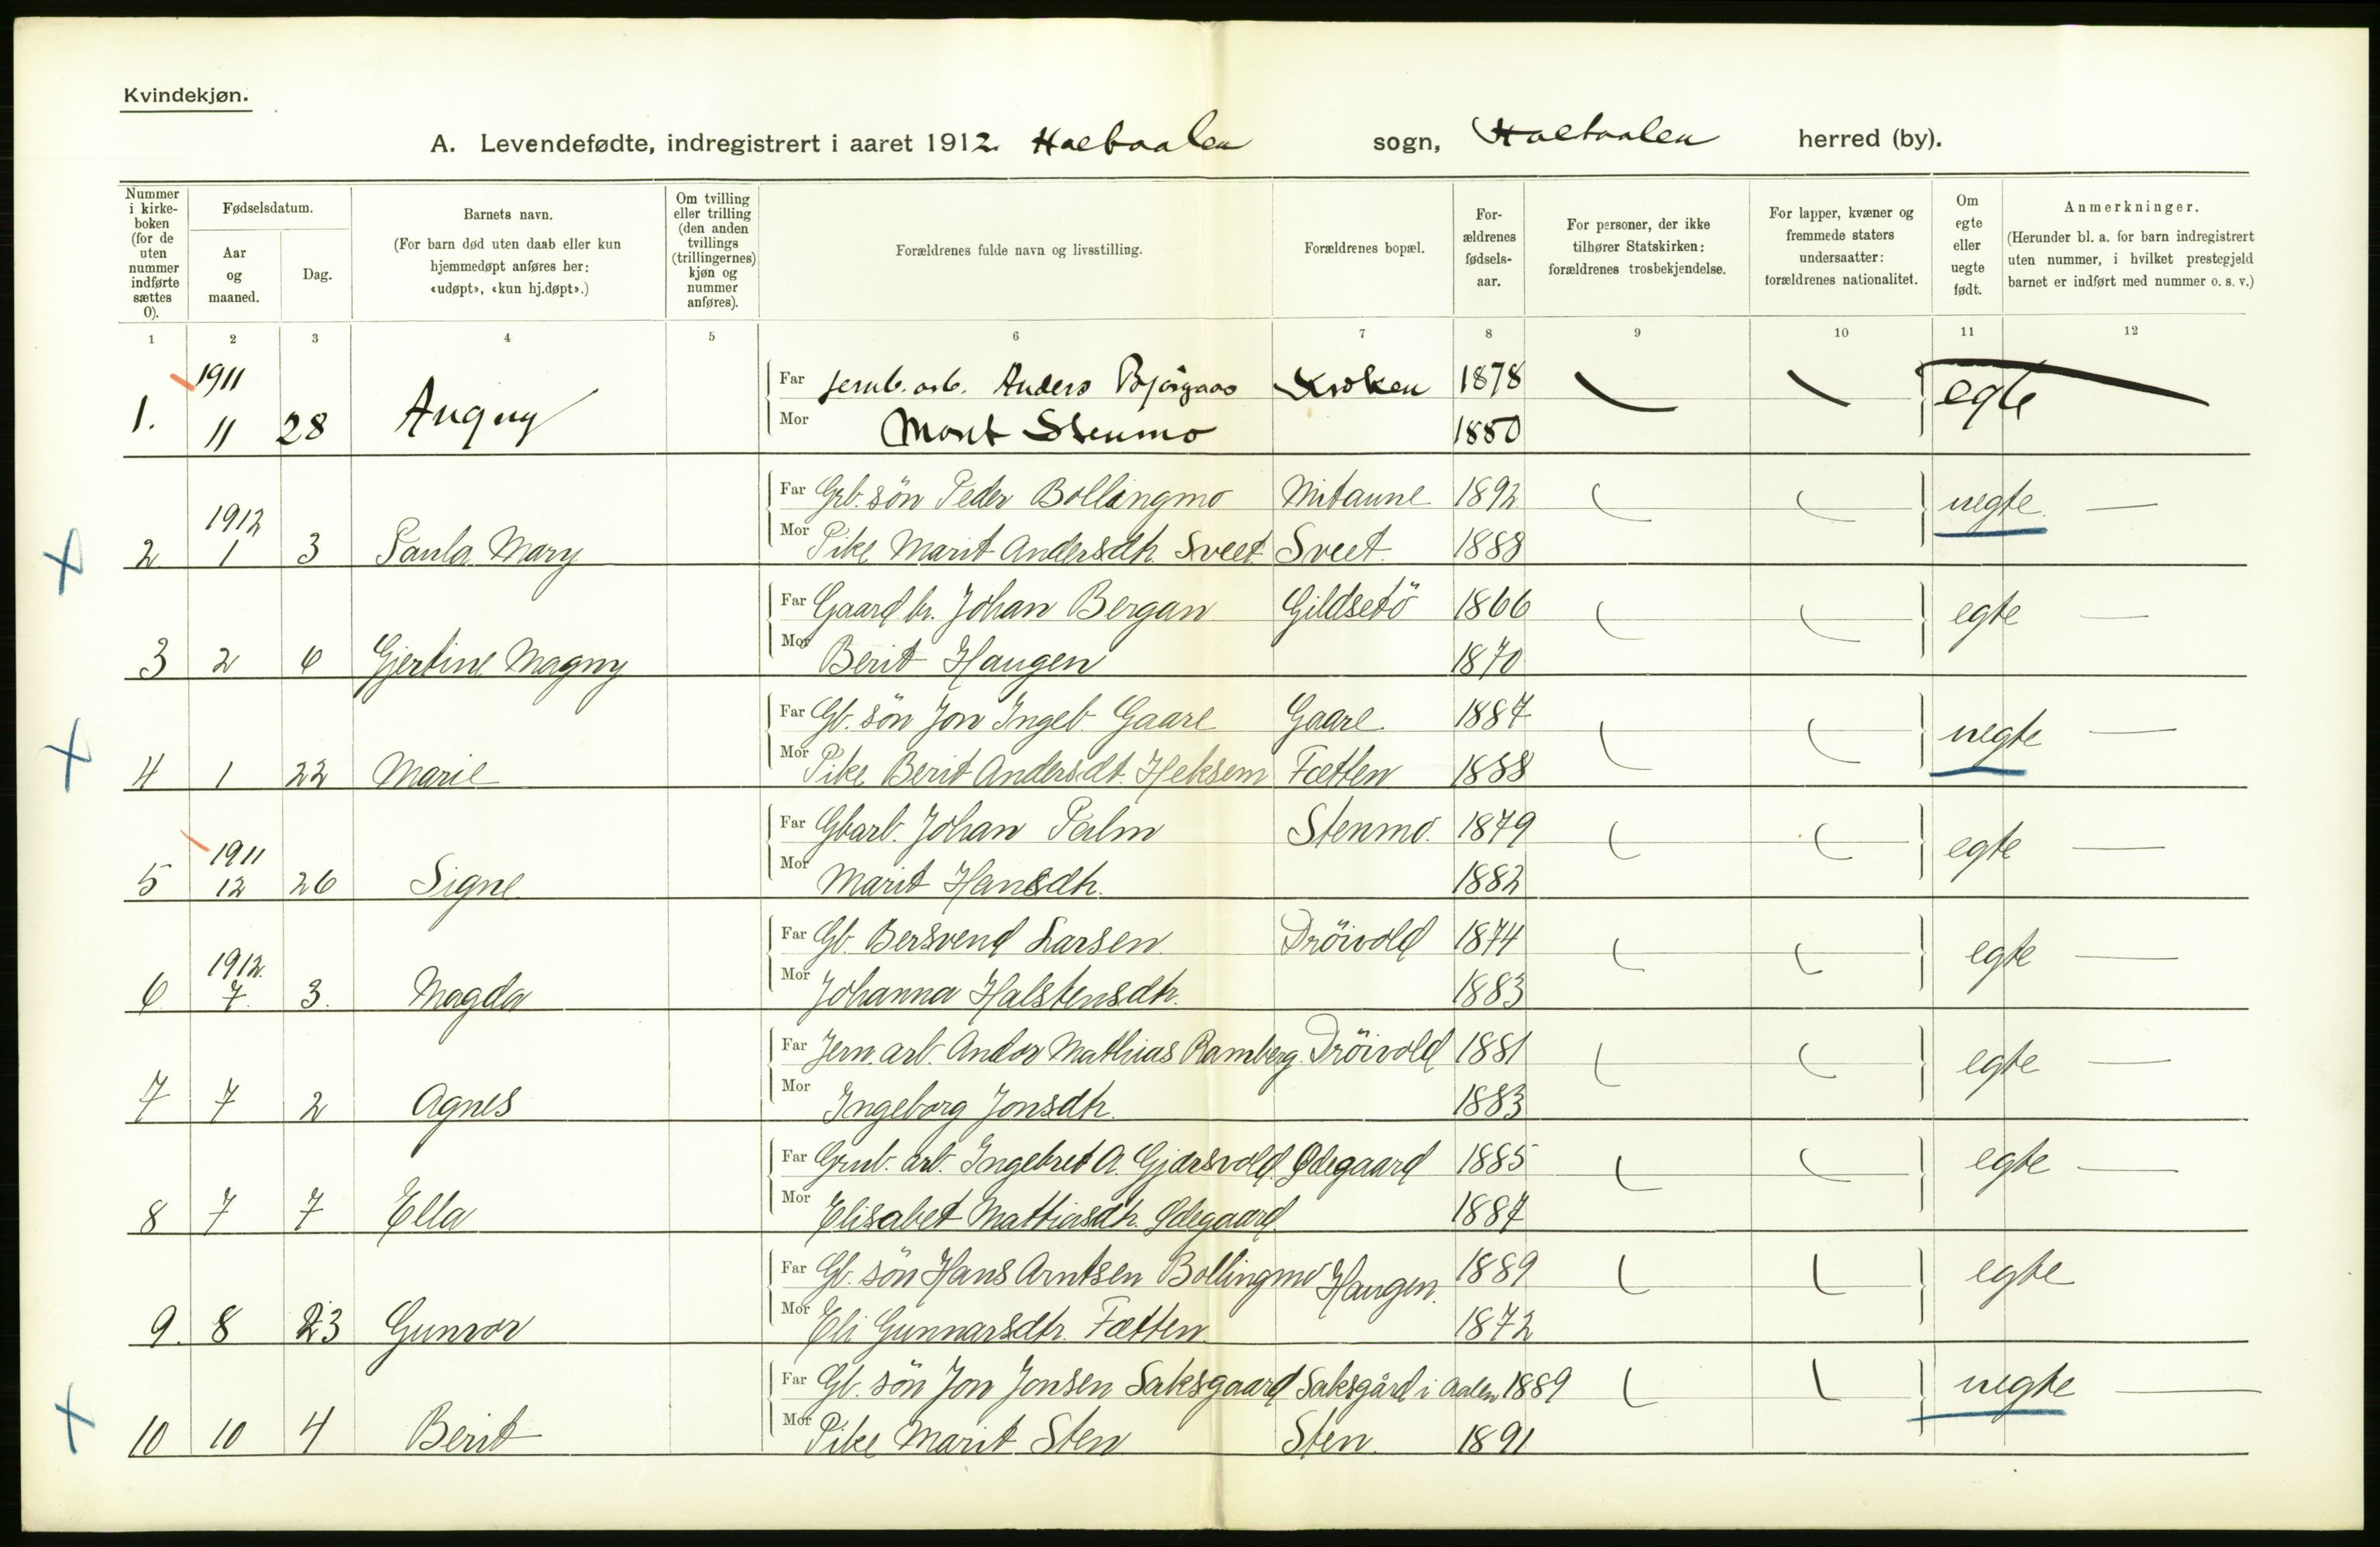 Kvindekjøn.
A. Levendefødte, indregistrert i aaret 1912. Holtaalen sogn, Holtaalen herred (by).
Nummer i kirke-boken (for de uten nummer indførte sættes 0).
Fødselsdatum.
Aar og maaned.
Dag.
Barnets navn.
(For barn død uten daab eller kun hjemmedøpt anføres her: «udøpt», «kun hj.døpt».)
Om tvilling eller trilling (den anden tvillings (trillingernes) kjøn og nummer anføres).
Forældrenes fulde navn og livsstilling.
Forældrenes bopæl.
For-ældrenes fødsels-aar.
For personer, der ikke tilhører Statskirken: forældrenes trosbekjendelse.
For lapper, kvæner og fremmede staters undersaatter: forældrenes nationalitet.
Om egte eller uegte født.
Anmerkninger.
(Herunder bl. a. for barn indregistrert uten nummer, i hvilket prestegjeld barnet er indført med nummer o. s. v.)
1 2 3 4 5 6 7 8 9 10 11 12
1911 Far jernb. arb. Anders Kroken 1878 egte
1. 11 28 Mor Marit Stenmo 1880
1912 Far Grb. søn Peder Bollingmo 1892 uegte —
2 1 3 Paula Mary Mor Pike Marit Andersdtr. Sveet Sveet 1888
Far Gaardbr. Johan Bergan Gildsetö 1866 egte —
3 2 6 Gjertine Magny Mor Berit Haugen 1870
Far Gb. sön Jon Ingeb. Gaare Gaare 1887 uegte —
4 1 22 Marie Mor Pike Berit Andersdt. Heksem Fætten 1888
1911 Far Gbarb. Johan Palm Stenmo. 1879 egte —
5 12 26 Signe Mor Marit Hansdtr. 1882
1912. Far Gb. Bersvend Larsen Dröivold 1874 egte —
6 7. 3. Magda Mor Johanna Halstensdtr. 1883
Far Jern. arb. Andor Mathias Ramberg Dröivold 1881 egte —
7 7 2 Agnes Mor Ingeborg Jonsdtr. 1883
Far Grub. arb. Ingebret A. Gjærsvold Ødegaard 1885 egte —
8 7 7 Ella Mor Elisabet Mathiasdtr. Ødegaard 1887
Far Gb. sön Hans Arntsen Bollingmo Haugen. 1889 egte
9. 8 23 Gunvor Mor Eli Gunnarsdtr. Fætten 1872
Far Gb. sön Jon Jonsen Saksgaard Saksgård i Aalen 1889 uegte —
10 10 4 Berit Mor Pike Marit Sten Sten 1891